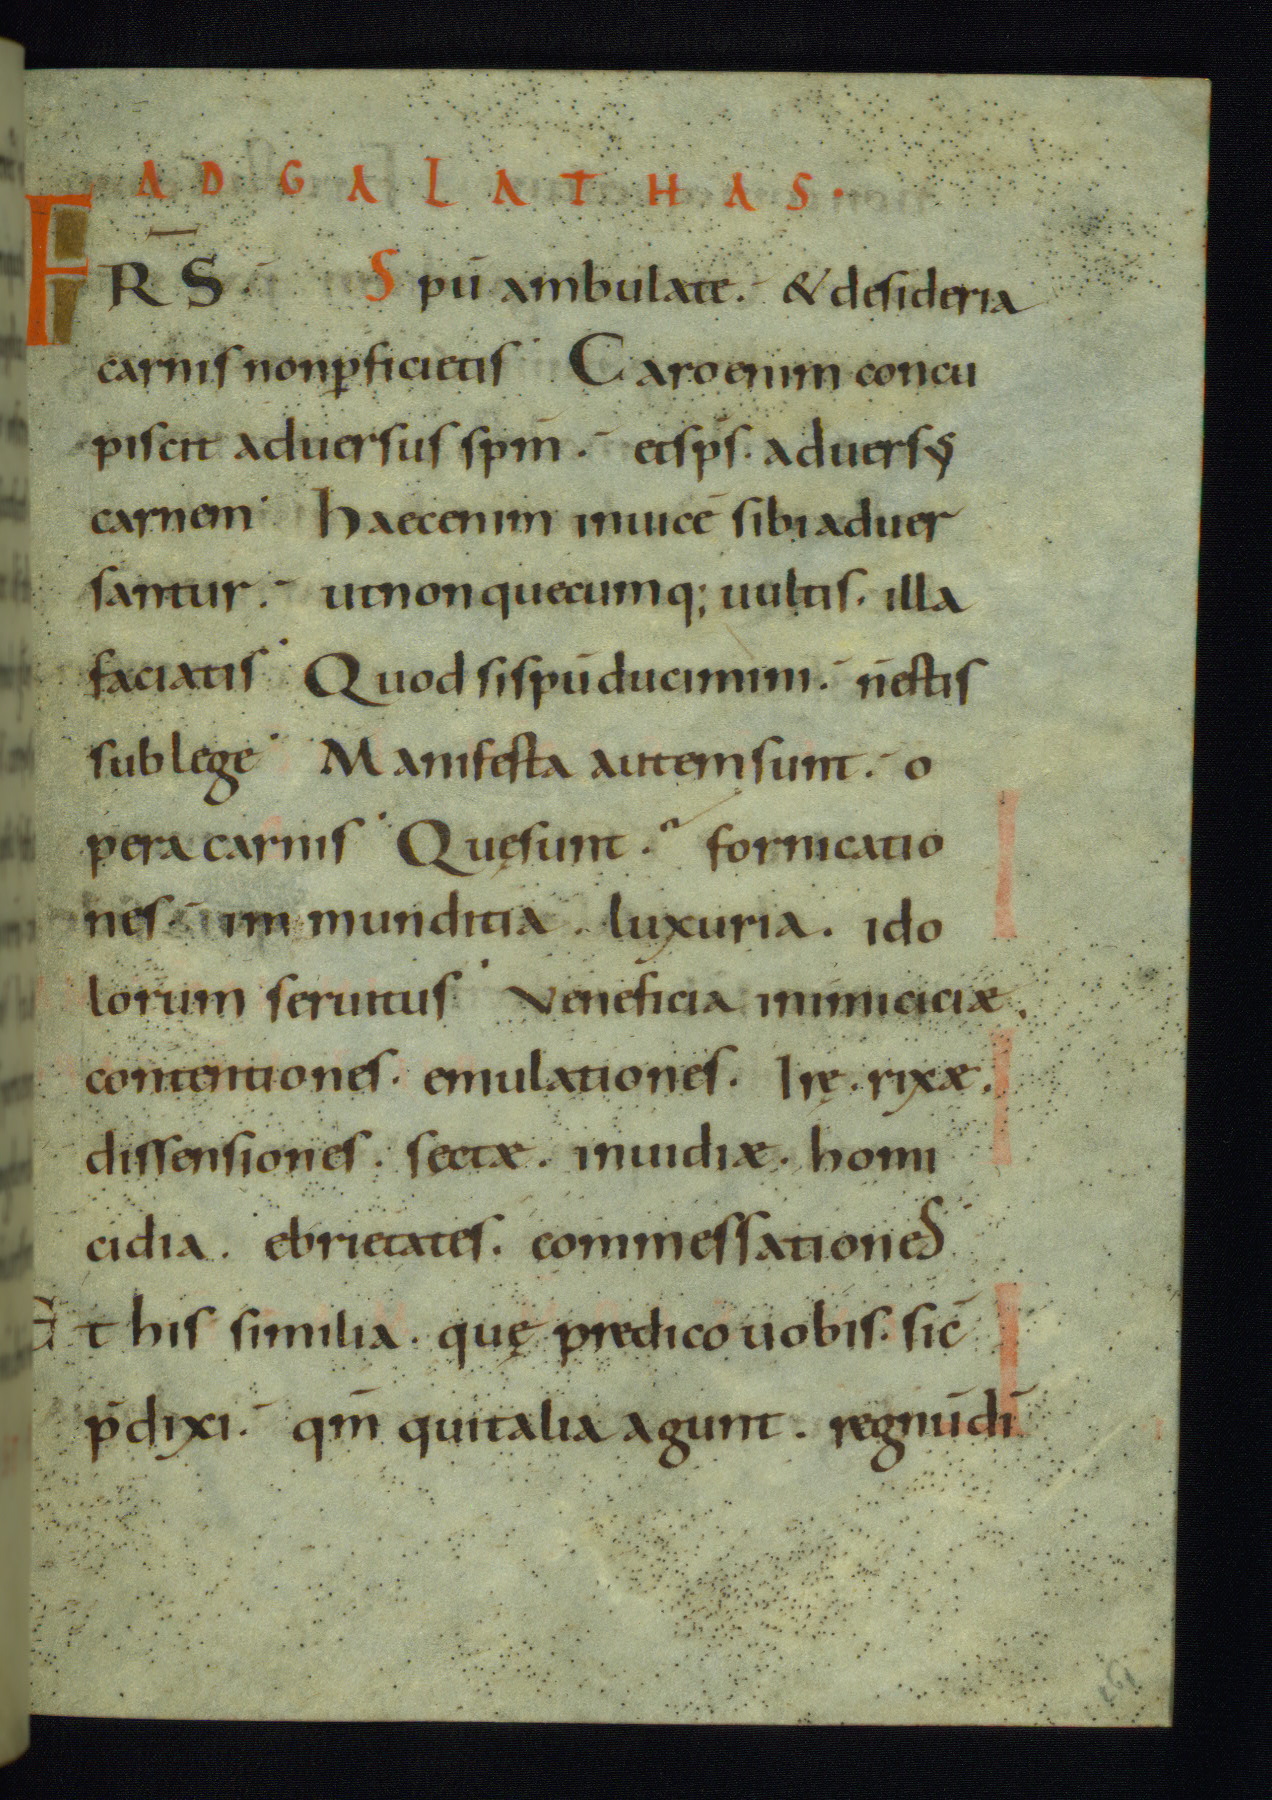 AD GALATHAS·
FRS̅. Spū ambulate. & desideria
carnis non ꝑficietis. Caro enim concu
piscit aduersus spm̄. et sps̄. aduersꝰ
carnem. haec enim inuicē sibi aduer
santur. ut non quecumq; uultis. illa
faciatis. Quod si spū ducimini. n̄ estis
sub lege. Manifesta autem sunt. o
pera carnis. Quę sunt. fornicatio
nes. immunditia. luxuria. ido
lorum seruitus. veneficia inimiciciæ.
contentiones. emulationes. Irę. rixæ.
dissensiones. sectæ. inuidiæ. homi
cidia. ebrietates. commessationes.
Et his similia. quę predico uobis. sic̄
p̄dixi. qm̄ qui talia agunt. regnū dī